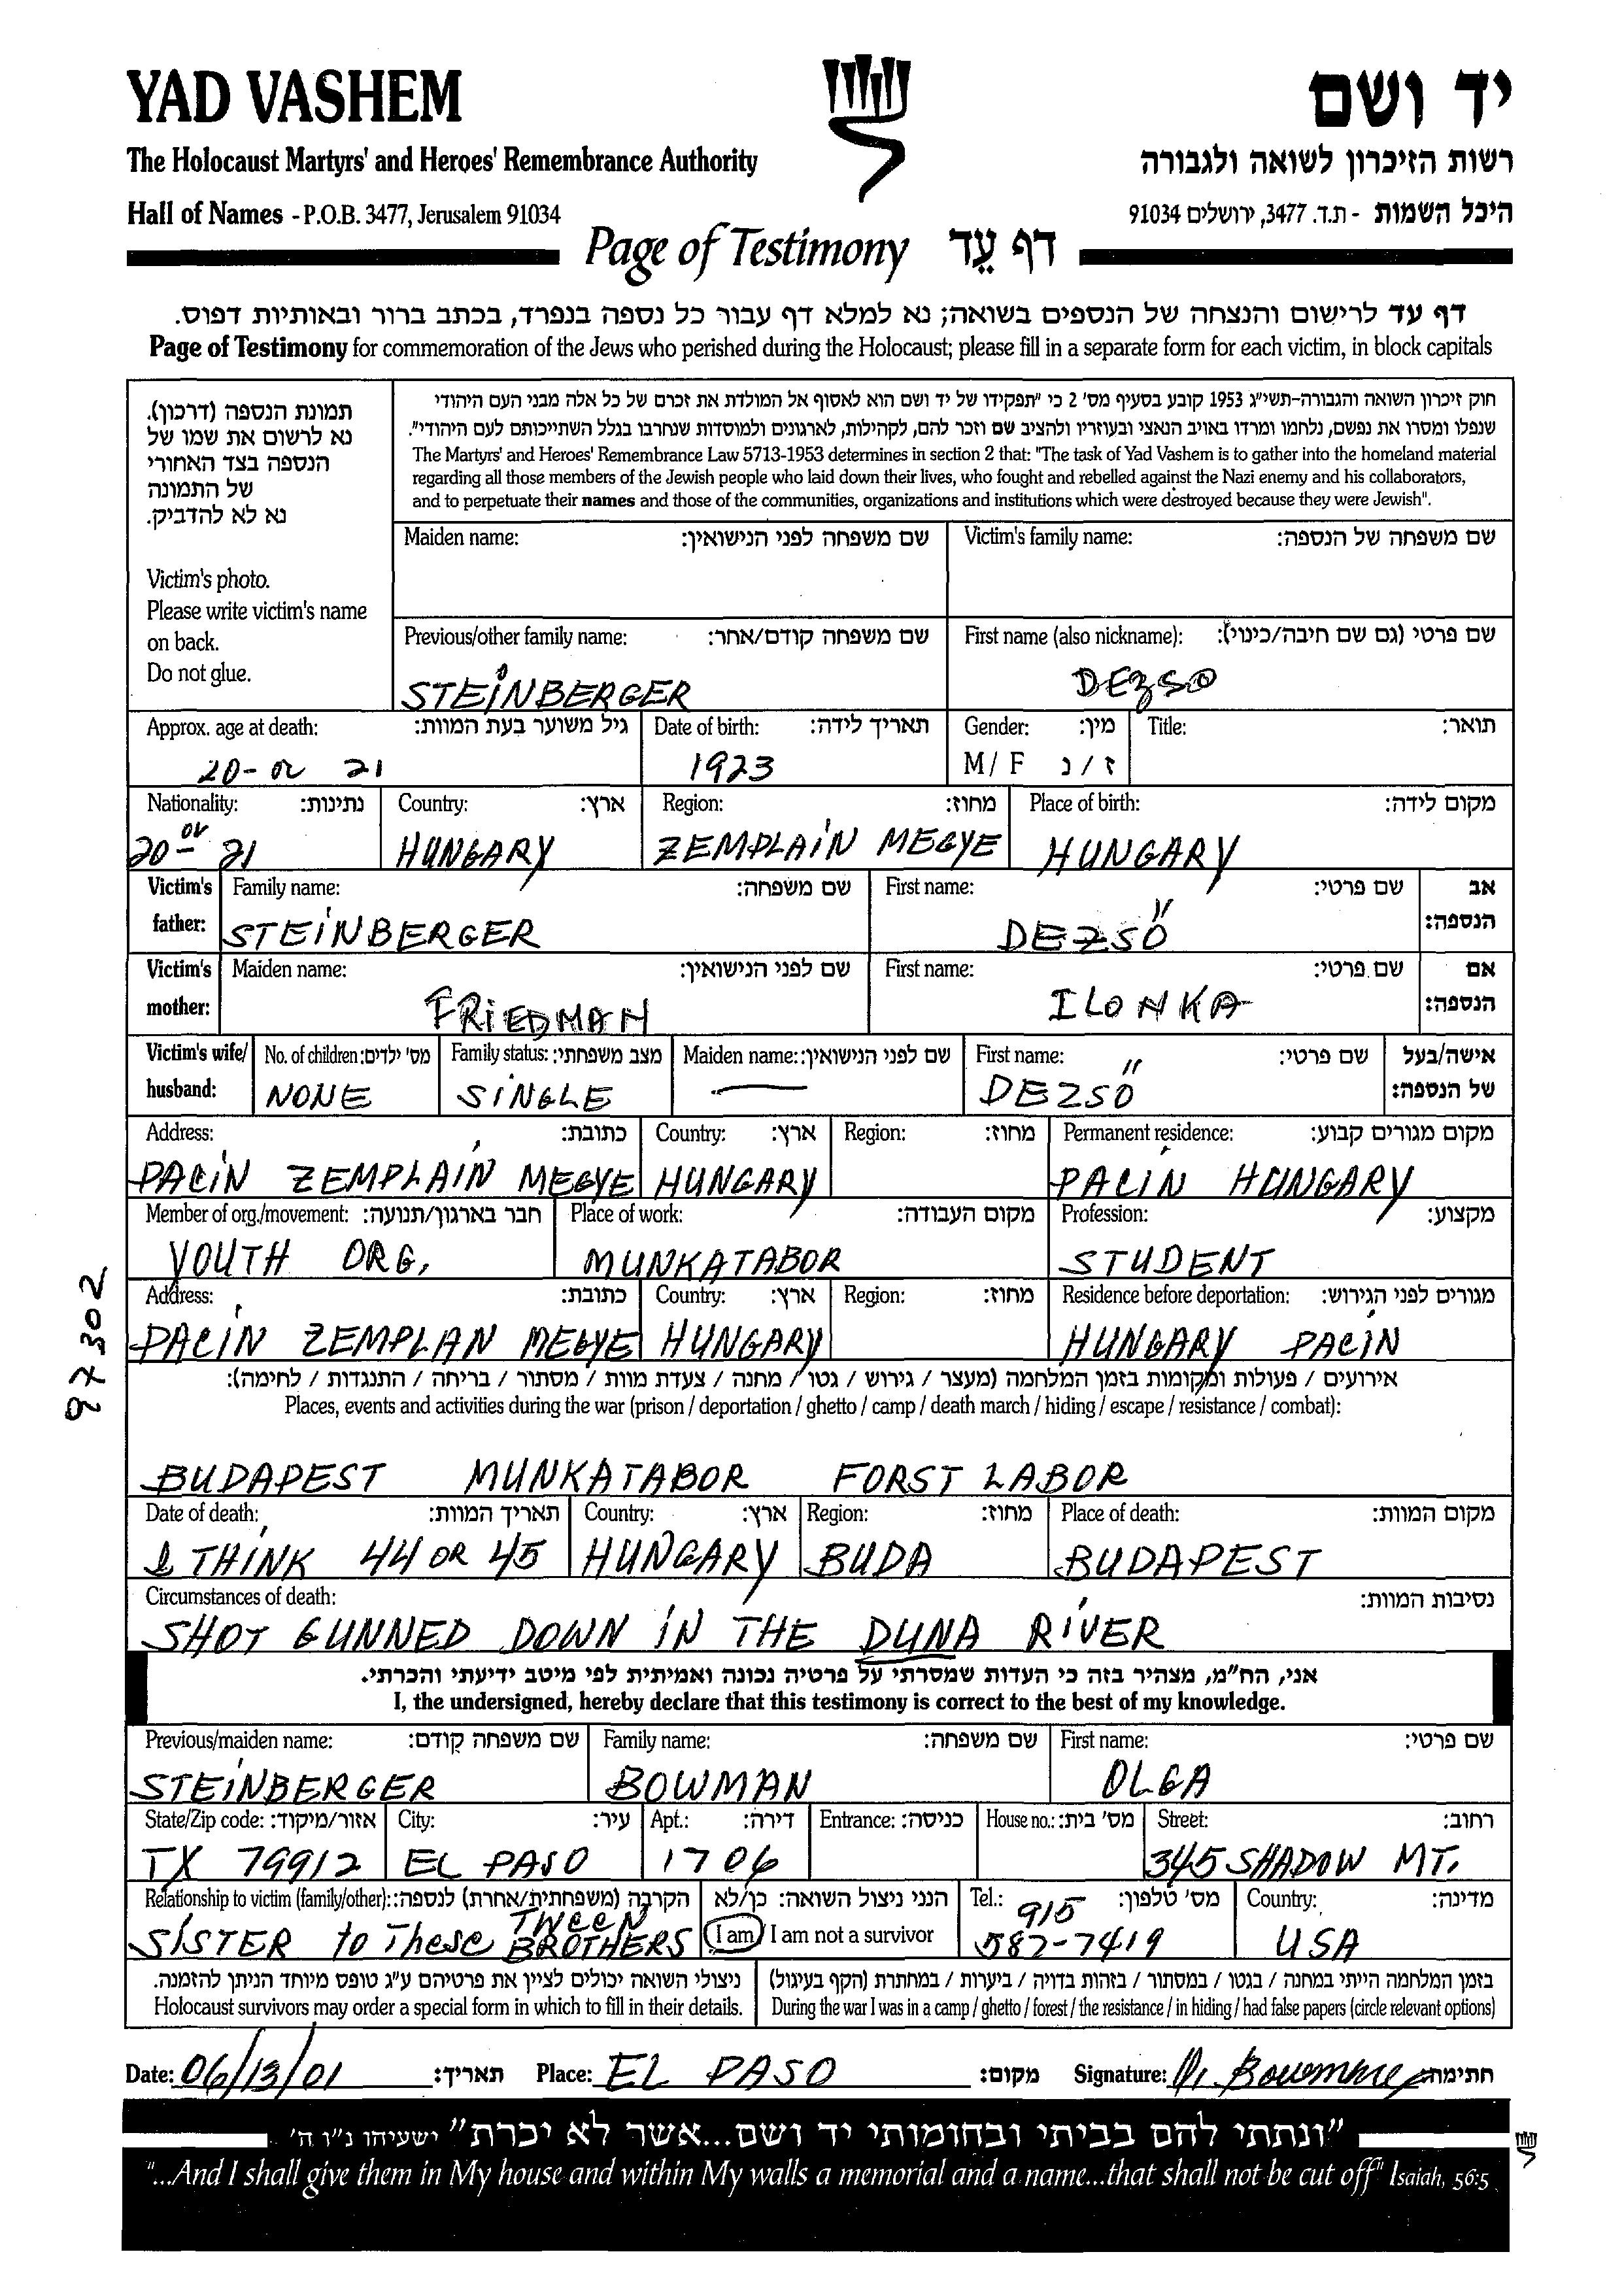 YAD VASHEM
יד ושם
The Holocaust Martyrs' and Heroes' Remembrance Authority
רשות הזיכרון לשואה ולגבורה
Hall of Names - P.O.B. 3477, Jerusalem 91034
היכל השמות - ת.ד. 3477, ירושלים 91034
Page of Testimony דף עֵד
דף עד לרישום והנצחה של הנספים בשואה; נא למלא דף עבור כל נספה בנפרד, בכתב ברור ובאותיות דפוס.
Page of Testimony for commemoration of the Jews who perished during the Holocaust; please fill in a separate form for each victim, in block capitals
תמונת הנספה (דרכון).
נא לרשום את שמו של
הנספה בצד האחורי
של התמונה
נא לא להדביק.
Victim's photo.
Please write victim's name
on back.
Do not glue.
חוק זיכרון השואה והגבורה-תשי"ג 1953 קובע בסעיף מס' 2 כי "תפקידו של יד ושם הוא לאסוף אל המולדת את זכרם של כל אלה מבני העם היהודי
שנפלו ומסרו את נפשם, נלחמו ומרדו באויב הנאצי ובעוזריו ולהציב שם וזכר להם, לקהילות, לארגונים ולמוסדות שנחרבו בגלל השתייכותם לעם היהודי".
The Martyrs' and Heroes' Remembrance Law 5713-1953 determines in section 2 that: "The task of Yad Vashem is to gather into the homeland material
regarding all those members of the Jewish people who laid down their lives, who fought and rebelled against the Nazi enemy and his collaborators,
and to perpetuate their names and those of the communities, organizations and institutions which were destroyed because they were Jewish".
Maiden name: שם משפחה לפני הנישואין: Victim's family name: שם משפחה של הנספה:
Previous/other family name: שם משפחה קודם/אחר: First name (also nickname): שם פרטי (גם שם חיבה/כינוי):
STEINBERGER DEZSO
Approx. age at death: גיל משוער בעת המוות: Date of birth: תאריך לידה: Gender: מין: Title: תואר:
20- or 21 1923 M / F ז / נ
Nationality: נתינות: Country: ארץ: Region: מחוז: Place of birth: מקום לידה:
20 or 21 HUNGARY ZEMPLAIN MEGYE HUNGARY
Victim's father: Family name: שם משפחה: First name: שם פרטי: אב הנספה:
STEINBERGER DEZSŐ
Victim's mother: Maiden name: שם לפני הנישואין: First name: שם פרטי: אם הנספה:
FRIEDMAN ILONKA
Victim's wife/ husband: No. of children: מס' ילדים: Family status: מצב משפחתי: Maiden name: שם לפני הנישואין: First name: שם פרטי: אישה/בעל של הנספה:
NONE SINGLE — DEZSŐ
Address: כתובת: Country: ארץ: Region: מחוז: Permanent residence: מקום מגורים קבוע:
PACIN ZEMPLAIN MEGYE HUNGARY PACIN HUNGARY
Member of org./movement: חבר בארגון/תנועה: Place of work: מקום העבודה: Profession: מקצוע:
YOUTH ORG, MUNKATABOR STUDENT
Address: כתובת: Country: ארץ: Region: מחוז: Residence before deportation: מגורים לפני הגירוש:
PACIN ZEMPLAN MEGYE HUNGARY HUNGARY PACIN
97302
אירועים / פעולות ומקומות בזמן המלחמה (מעצר / גירוש / גטו / מחנה / צעדת מוות / מסתור / בריחה / התנגדות / לחימה):
Places, events and activities during the war (prison / deportation / ghetto / camp / death march / hiding / escape / resistance / combat):
BUDAPEST MUNKATABOR FORST LABOR
Date of death: תאריך המוות: Country: ארץ: Region: מחוז: Place of death: מקום המוות:
I THINK 44 OR 45 HUNGARY BUDA BUDAPEST
Circumstances of death: נסיבות המוות:
SHOT GUNNED DOWN IN THE DUNA RIVER
אני, הח"מ, מצהיר בזה כי העדות שמסרתי על פרטיה נכונה ואמיתית לפי מיטב ידיעתי והכרתי.
I, the undersigned, hereby declare that this testimony is correct to the best of my knowledge.
Previous/maiden name: שם משפחה קודם: Family name: שם משפחה: First name: שם פרטי:
STEINBERGER BOWMAN OLGA
State/Zip code: אזור/מיקוד: City: עיר: Apt.: דירה: Entrance: כניסה: House no.: מס' בית: Street: רחוב:
TX 79912 EL PASO 1706 345 SHADOW MT.
Relationship to victim (family/other): הקרבה (משפחתית/אחרת) לנספה: הנני ניצול השואה: כן/לא Tel.: מס' טלפון: Country: מדינה:
SISTER to These TWEEN BROTHERS I am / I am not a survivor 915 587-7419 USA
ניצולי השואה יכולים לציין את פרטיהם ע"ג טופס מיוחד הניתן להזמנה. בזמן המלחמה הייתי במחנה / בגטו / במסתור / בזהות בדויה / ביערות / במחתרת (הקף בעיגול)
Holocaust survivors may order a special form in which to fill in their details. During the war I was in a camp / ghetto / forest / the resistance / in hiding / had false papers (circle relevant options)
Date: 06/13/01 תאריך: Place: EL PASO מקום: Signature: O. Bowman חתימה:
"ונתתי להם בביתי ובחומותי יד ושם...אשר לא יכרת" ישעיהו נ"ו ה'
"...And I shall give them in My house and within My walls a memorial and a name...that shall not be cut off" Isaiah, 56:5